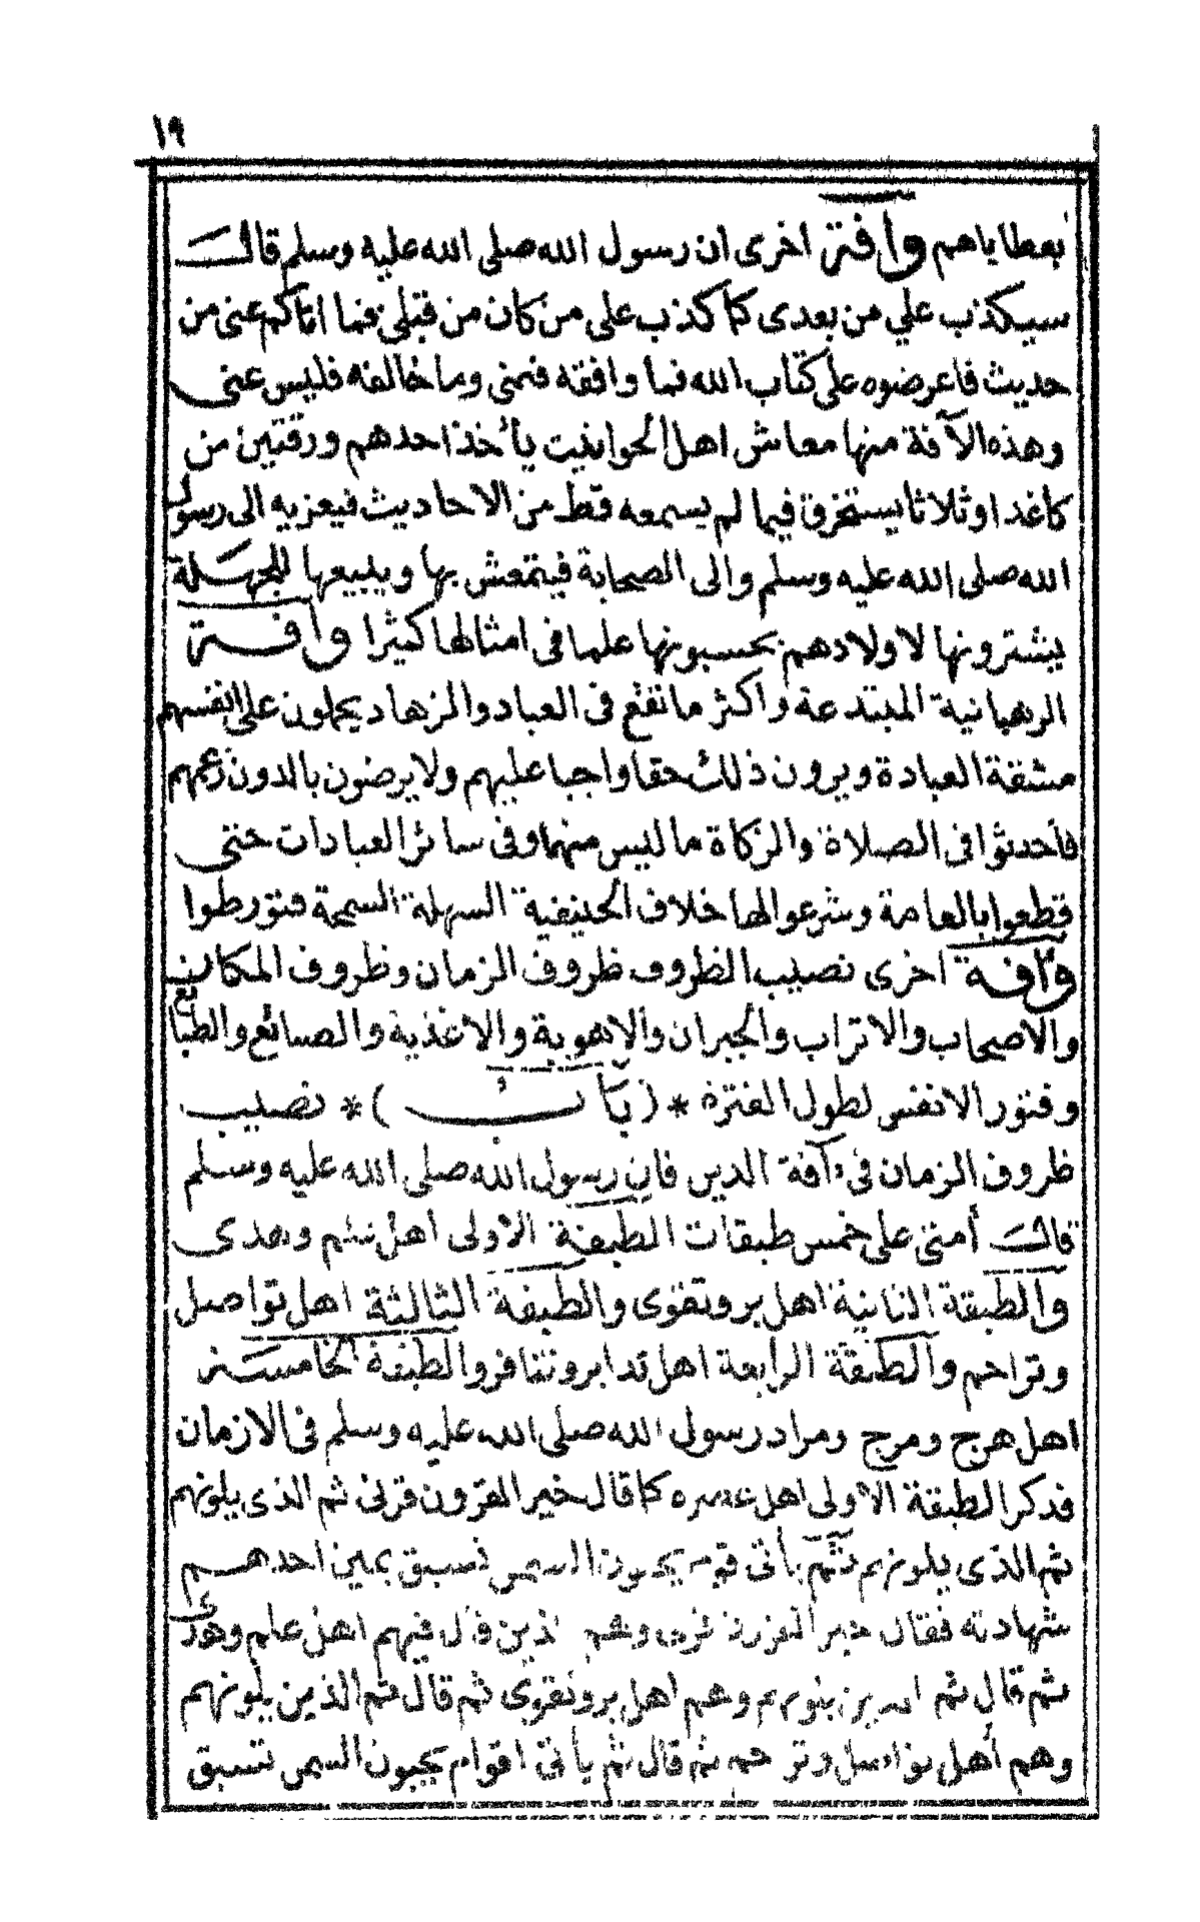 ١٩
بعطاياهم وآفة اخرى ان رسول الله صلى الله عليه وسلم قال
سيكذب علي من بعدى كما كذب على من كان من قبلى فما اتاكم عنى من
حديث فاعرضوه على كتاب الله فما وافقه فمنى وما خالفه فليس عنى
وهذه الآفة منها معاش اهل الحوانيت يأخذ احدهم ورقتين من
كاغد او ثلاثا يستخرق فيما لم يسمعه قط من الاحاديث فيعزيه الى رسول
الله صلى الله عليه وسلم والى الصحابة فيتمعش بها ويبيعها للجهلة
يشترونها لاولادهم يحسبونها علما فى امثالها كثيرا وآفة
الرهبانية المبتدعة واكثر ما تقع فى العباد والزهاد يحملون على انفسهم
مشقة العبادة ويرون ذلك حقا واجبا عليهم ولا يرضون بالدون زعمهم
فاحدثوا فى الصلاة والزكاة ما ليس منهما وفى سائر العبادات حتى
قطعوا بالعامة وشرعوا لها خلاف الحنيفية السهلة السمحة فتورطوا
وآفة اخرى نصيب الظروف ظروف الزمان وظروف المكان
والاصحاب والاتراب والجيران والاهوية والاغذية والصنائع والطبائع
وفتور الانفس لطول الفترة * (باب) * نصيب
ظروف الزمان فى آفة الدين فان رسول الله صلى الله عليه وسلم
قال أمتى على خمس طبقات الطبقة الاولى اهل علم وهدى
والطبقة الثانية اهل بر وتقوى والطبقة الثالثة اهل تواصل
وتراحم والطبقة الرابعة اهل تدابر وتنافر والطبقة الخامسة
اهل هرج ومرج ومراد رسول الله صلى الله عليه وسلم فى الازمان
فذكر الطبقة الاولى اهل عصره كما قال خير القرون قرنى ثم الذى يلونهم
ثم الذى يلونهم ثم يأتى قوم يحبون السمن تسبق يمين احدهم
شهادته فقال خير القرون قرنى وهم الذين قال فيهم اهل علم وهدى
ثم قال ثم الذين يلونهم وهم اهل بر وتقوى ثم قال ثم الذين يلونهم
وهم أهل تواصل وتراحم ثم قال ثم يأتى اقوام يحبون السمن تسبق